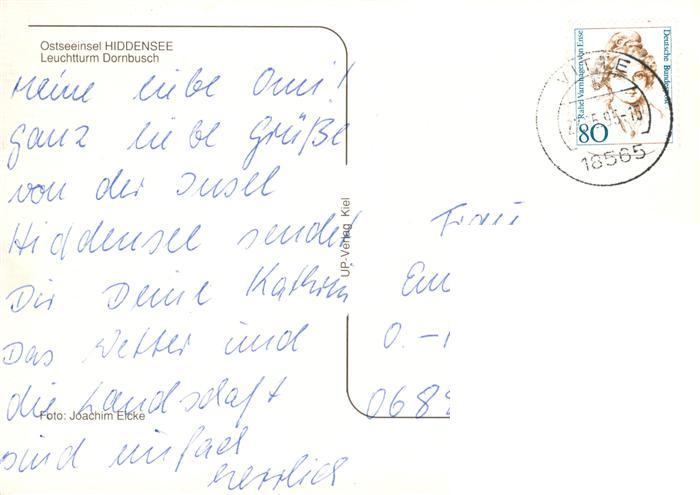 Ostseeinsel HIDDENSEE
Leuchtturm Dornbusch
Meine liebe Omi!
ganz liebe Grüße
von der Insel
Hiddensee sendet
Dir Deine Kathrin
Das Wetter und
die Landschaft
sind einfach
herrlich
Foto: Joachim Eicke
UP-Verlag Kiel
Deutsche Bundespost
Rahel Varnhagen von Ense
80
18565
Frau